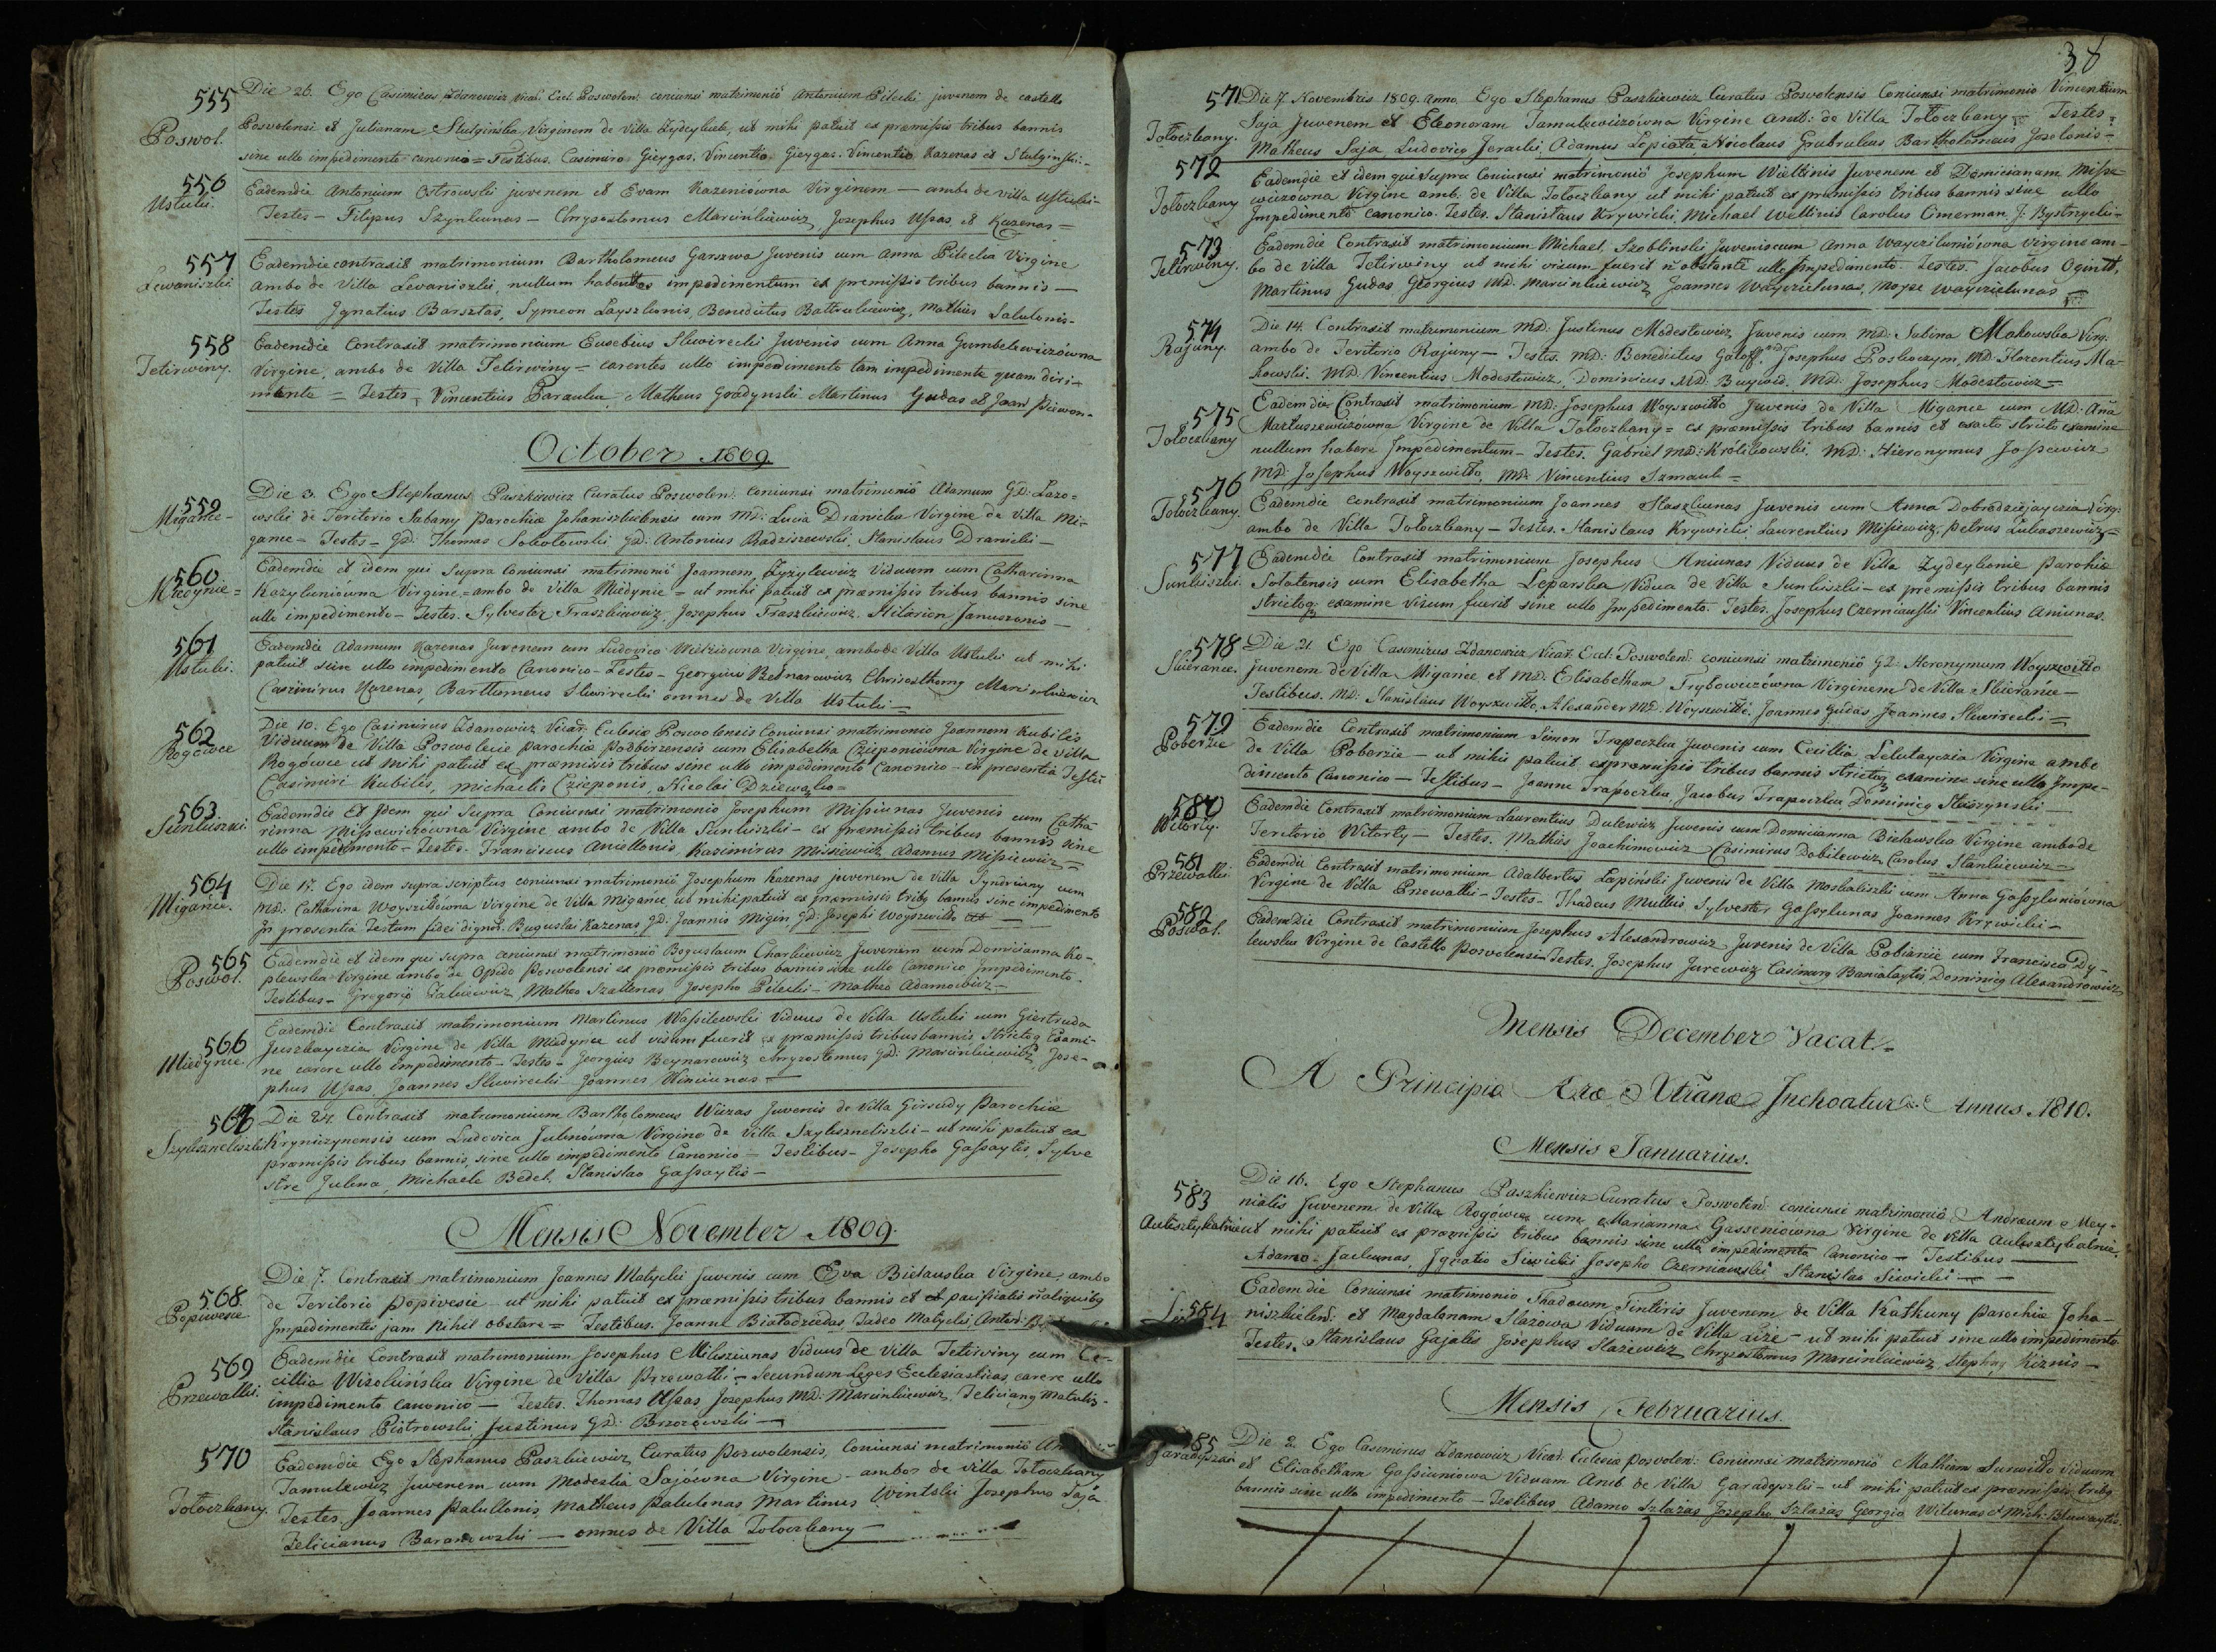 555
Poswol.
Die 26. Ego Casimirus Zdanowicz Vicar. Eccl. Poswolen. coniunxi matrimonio Antonium Pilecki juvenem de castello
Poswolensi et Julianam Stulgińska Virginem de Villa Zydeykele, ut mihi patuit ex præmissis tribus bannis
sine ullo impedimento canonico = Testibus. Casimiro Gieygas. Vincentio Gieygas. Vincentio Kazenas et Stulgiński =
556
Ustuki.
Eademdie Antonium Ostrowski juvenem et Evam Kazeniówna Virginem — ambo de villa Ustuki —
Testes — Filipus Szynkunas — Chrysostomus Marcinkiewicz, Josephus Ussas, et Kazenas =
557
Lewaniszki
Eademdie contraxit matrimonium Bartholomeus Garszwa Juvenis cum Anna Pilecka Virgine
ambo de Villa Levaniszki, nullum habentes impedimentum ex premissis tribus bannis —
Testes Ignatius Barsztas, Symeon Layszkonis, Benedictus Battrukiewicz, Mathias Salulonis —
558
Tetirwiny.
Eademdie Contraxit matrimonium Eusebius Skwirecki Juvenis cum Anna Gumbelewiczówna
Virgine, ambo de Villa Tetirwiny = carentes ullo impedimento tam impediente quam diri-
mente = Testes, Vincentius Parauka, Matheus Gradynski Martinus Gudas et Joan Piewon.
October 1809
559
Migańce —
Die 3. Ego Stephanus Paszkiewicz Curatus Poswolen. Coniunxi matrimonio Adamum GD: Lazo=
wski de Teritorio Sabany Parochiæ Johaniszkielensis cum MD: Lucia Dranicka Virgine de Villa Mi=
gance — Testes — GD: Thomas Sokołowski GD: Antonius Radziszewski, Stanislaus Dranicki —
560
Miedynie =
Eademdie et idem qui Supra Coniunxi matrimonio Joannem Zyzylewicz Viduum cum Catharinna
Kazykuniówna Virgine = ambo de Villa Miedynie = ut mihi patuit ex præmissis tribus bannis sine
ullo impedimento — Testes. Sylvester Fraszkiewicz, Josephus Fraszkiewicz, Hilarion Januszonis —
561
Ustuki.
Eademdie Adamum Kazenas Juvenem cum Ludovica Midziówna Virgine, ambo de Villa Ustuki ut mihi
patuit sine ullo impedimento Canonico — Testes — Georgius Bednarowicz Chrisosthomy Marcinkiewicz
Casimirus Kazenas, Barttomeus Skwirecki omnes de Villa Ustuki =
562
Rogówce
Die 10. Ego Casimirus Zdanowicz Vicar. Eclesiæ Poswolensis Coniunxi matrimonio Joannem Kubilis
Viduum de Villa Poswolecie Parochiæ Podbirzensis cum Elisabetha Czieponiówna Virgine de villa
Rogówce ut mihi patuit ex præmissis tribus sine ullo impedimento Canonico — in presentia Testiũ
Casimiri Kubilis, Michaelis Czieponis, Nicolai Dziewałto =
563
Sunkiszki
Eademdie Et Idem qui Supra Coniunxi matrimonio Josephum Missiunas Juvenis cum Catha-
rinna Missiewiczówna Virgine ambo de Villa Sunkiszki — ex premissis tribus bannis sine
ullo impedimento — Testes. Franciscus Aniellonis, Kasimiras Missiewicz Adamus Missiewicz =
564
Migańce.
Die 17. Ego idem supra scriptus coniunxi matrimonio Josephum Kazenas juvenem de Villa Syndriuny cum
MD: Catharina Woyszwiłłówna Virgine de Villa Migance, ut mihi patuit ex præmissis tribq bannis sine impedimento
In præsentia Testium fidei dignor. Boguslai Kazenas, GD: Joannis Migin, GD: Josephi Woyszwiłło
565
Poswol.
Eademdie et idem qui supra coniunxi matrimonio Boguslaum Charkiewicz Juvenem cum Domicianna Ko-
plewska Virgine ambo de Opido Poswolensi ex præmissis tribus bannis sine ullo Canonico Impedimento.
Testibus — Gregorio Zalkiewicz, Matheo Szattenas Josepho Pilecki — Matheo Adamowicz —
566
Miedynie.
Eademdie Contraxit matrimonium Martinus Wassilewski Viduus de Villa Ustuki cum Giertruda
Juszkayczia Virgine de Villa Miedynce ut visum fuerit ex præmissis tribus bannis, Strictoq Exami-
ne carere ullo impedimento — Testes — Georgius Beynarowicz, Chryzostomus GD: Marcinkiewicz, Jose-
phus Ussas, Joannes Skwirecki Joannes Winciunas =
567
Szykszneliszki
Die 24. Contraxit matrimonium Bartholomeus Wiizas Juvenis de Villa Girsudy Parochiæ
Krynczynensis cum Ludovica Juknówna Virgine de Villa Szykszneliszki — ut mihi patuit ex
præmissis tribus bannis, sine ullo impedimento Canonico — Testibus — Josepho Gassaytis, Sylve
stre Jukna, Michaele Bedel, Stanislao Gassaytis —
Mensis November 1809.
568
Popiwesie
Die 7. Contraxit matrimonium Joannes Matycki Juvenis cum Eva Bielauska Virgine, ambo
de Teritorio Popivesie — ut mihi patuit ex præmissis tribus bannis et
Impedimentis jam Nihil obstare = Testibus. Joanne Białodziedas, Tadeo Matycki, Anton:
569
Przewałki.
Eademdie Contraxit matrimonium Josephus Miliszunas Viduus de Villa Tetirwiny cum Ce-
cillia Wisokińska Virgine de Villa Przewałki — Secundum Leges Eclesiasticas, carere ullo
impedimento canonico — Testes. Thomas Ussas, Josephus MD: Marcinkiewicz, Feliciang Matulis.
Stanislaus Piotrowski, Justinus GD: Brzozowski —
570
Tołoczkany.
Eademdie Ego Stephanus Paszkiewicz Curatus Poswolensis, coniunxi matrimonio
Tamulewicz Juvenem cum Modestia Sajówna Virgine — ambos de villa Tołoczkany
Testes. Joannes Palullonis, Matheus Palulonas Martinus Wintski Josephus Saja
Felicianus Baranowski — omnes de Villa Tołoczkany —
38
571
Tołoczkany.
Die 7. Novembris 1809. anno Ego Stephanus Paszkiewicz Curatus Poswolensis Coniunxi matrimonio Vincentium
Saja Juvenem et Eleonoram Tamulewiczówna Virgine amb: de Villa Tołoczkany = Testes =
Matheus Saja, Ludovicq Jeracki, Adamus Lopiata, Nicolaus Grubrukas Bartholomeus Jozolonis —
572
Tołoczkany
Eademdie et idem qui Supra Coniunxi matrimonio Josephum Wieltinis Juvenem et Domicianam Missie
wiczówna Virgine amb. de Villa Tołoczkany ut mihi patuit ex præmissis tribus bannis sine ullo
Impedimento canonico. Testes. Stanislaus Krywicki, Michael Weltinis Carolus Cimerman. J: Bystrycki —
573
Tetirwiny.
Eademdie Contraxit matrimonium Michael. Szoblinski Juvenis cum Anna Wayczikuniówna virgine am-
bo de Villa Tetirwiny ut mihi visum fuerit n obstante ullo Impedimento. Testes. Jacobus Ogintt,
Martinus Gudas Georgius MD. Marcinkiewicz, Joannes Wayczielunas, Moyse Wayczielunas.
574
Rajuny.
Die 14. Contraxit matrimonium MD: Justinus Modestowicz Juvenis cum MD: Sabina Makowska Virg.
ambo de Teritorio Rajuny — Testes. MD: Benedictus Gatoff. Josephus Poskoczym, MD: Florentius Ma-
kowski. MD: Vincentius Modestowicz, Dominicus MD: Buywid. MD: Josephus Modestowicz =
575
Tołoczkany
Eademdie Contraxit matrimonium MD: Josephus Woyszwiłło Juvenis de Villa Migance cum MD: Aña
Martuszewiczówna Virgine de Villa Tołoczkany = ex præmissis tribus bannis et exacto stricto examine
nullum habere Impedimentum — Testes. Gabriel MD: Królikowski, MD: Hieronymus Jossewicz
MD: Josephus Woyszwiłło, MD: Vincentius Szmauk =
576
Tołoczkany.
Eademdie contraxit matrimonium Joannes Staszkunas Juvenis cum Anna Dobrodziejayczia Virg:
ambo de Villa Tołoczkany — Testes. Stanislaus Krywicki, Laurentius Missiewicz, Petrus Łukaszewicz =
577
Sunkiszki.
Eademdie Contraxit matrimonium Josephus Aniunas Viduus de Villa Zydeykonie Parohiæ
Solatensis cum Elisabetha Leparska Vidua de Villa Sunkiszki — ex premissis tribus bannis
Strictoq examine visum fuerit sine ullo Impedimento. Testes. Josephus Czerniauski Vincentius Aniunas.
578
Skierance.
Die 21. Ego Casimirus Zdanowicz Vicar. Eccl: Poswolen: coniunxi matrimonio GD: Heronymum Woyszwiłło
Juvenem de Villa Migańce et MD: Elisabetham Trybowiczówna Virginem de Villa Skierańce —
Testibus. MD: Stanislaus Woyszwiłło, Alexander MD: Woyszwiłło, Joannes Gudas, Joannes Skwirecki =
579
Poberże
Eademdie Contraxit matrimonium Simon Trapoczka Juvenis cum Cecillia Lelutayczia Virgine ambo
de Villa Poberzie — ut mihi patuit ex premissis tribus bannis strictoq examine sine ullo Impe-
dimento Canonico — Testibus — Joanne Trapoczka, Jacobus Trapoczka Dominicq Staszynski
580
Witorty.
Eademdie Contraxit matrimonium Laurentius Dulewicz Juvenis cum Domicianna Bielawska Virgine ambo de
Teritorio Witorty — Testes. Mathias Joachimowicz, Casimirus Dobilewicz, Carolus Stankiewicz =
581
Przewałki
Eademdie Contraxit matrimonium Adalbertus Lapiński Juvenis de Villa Moskaliszki cum Anna Gassyluniówna
Virgine de Villa Przewałki — Testes. Thadeus Mulkis, Sylvester Gassylunas Joannes Krywicki —
582
Poswol.
Eademdie Contraxit matrimonium Josephus Alexandrowicz Juvenis de Villa Pobianie cum Francisca Dy-
lewska Virgine de Castello Poswolensi = Testes. Josephus Jurewicz Casimirq Baniolaytis, Dominicq Alexandrowicz
Mensis December Vacat =
A Principio Inchoatur Annus. 1810.
Mensis Januarius.
583
Aukszty
Die 16. Ego Stephanus Paszkiewicz Curatus Poswolen: coniunxi matrimonio, Andræum Mey-
nialis Juvenem de Villa Rogówce cum Marianna Gasseniówna Virgine de Villa
ut mihi patuit ex præmissis tribus bannis sine ullo impedimento Canonico — Testibus —
Adamo Jackunas, Ignatio Siwicki Josepho Czerniawski Stanislao Siwicki —
584
Eademdie Coniunxi matrimonio Thadæum Tintéris Juvenem de Villa Katkuny Parochiæ Joha-
niszkielen: et Magdalenam Slazowa Viduam de Villa Liże — ut mihi patuit sine ullo impedimento
Testes. Stanislaus Gajalis, Josephus Slazewicz Chryzostomus Marcinkiewicz, Stephaq Kiznis —
Mensis Februarius.
585
Die 2. Ego Casimirus Zdanowicz Vicar. Eclesiæ Poswolen: Coniunxi matrimonio Mathiam Surwiłło Viduum
et Elisabetham Gassiuniowa Viduam Amb. de Villa Garadyszki — ut mihi patuit ex præmissis tribq
bannis sine ullo impedimento — Testibus Adamo Szlażas, Josepho Szlażas, Georgio Witunas et Mich: